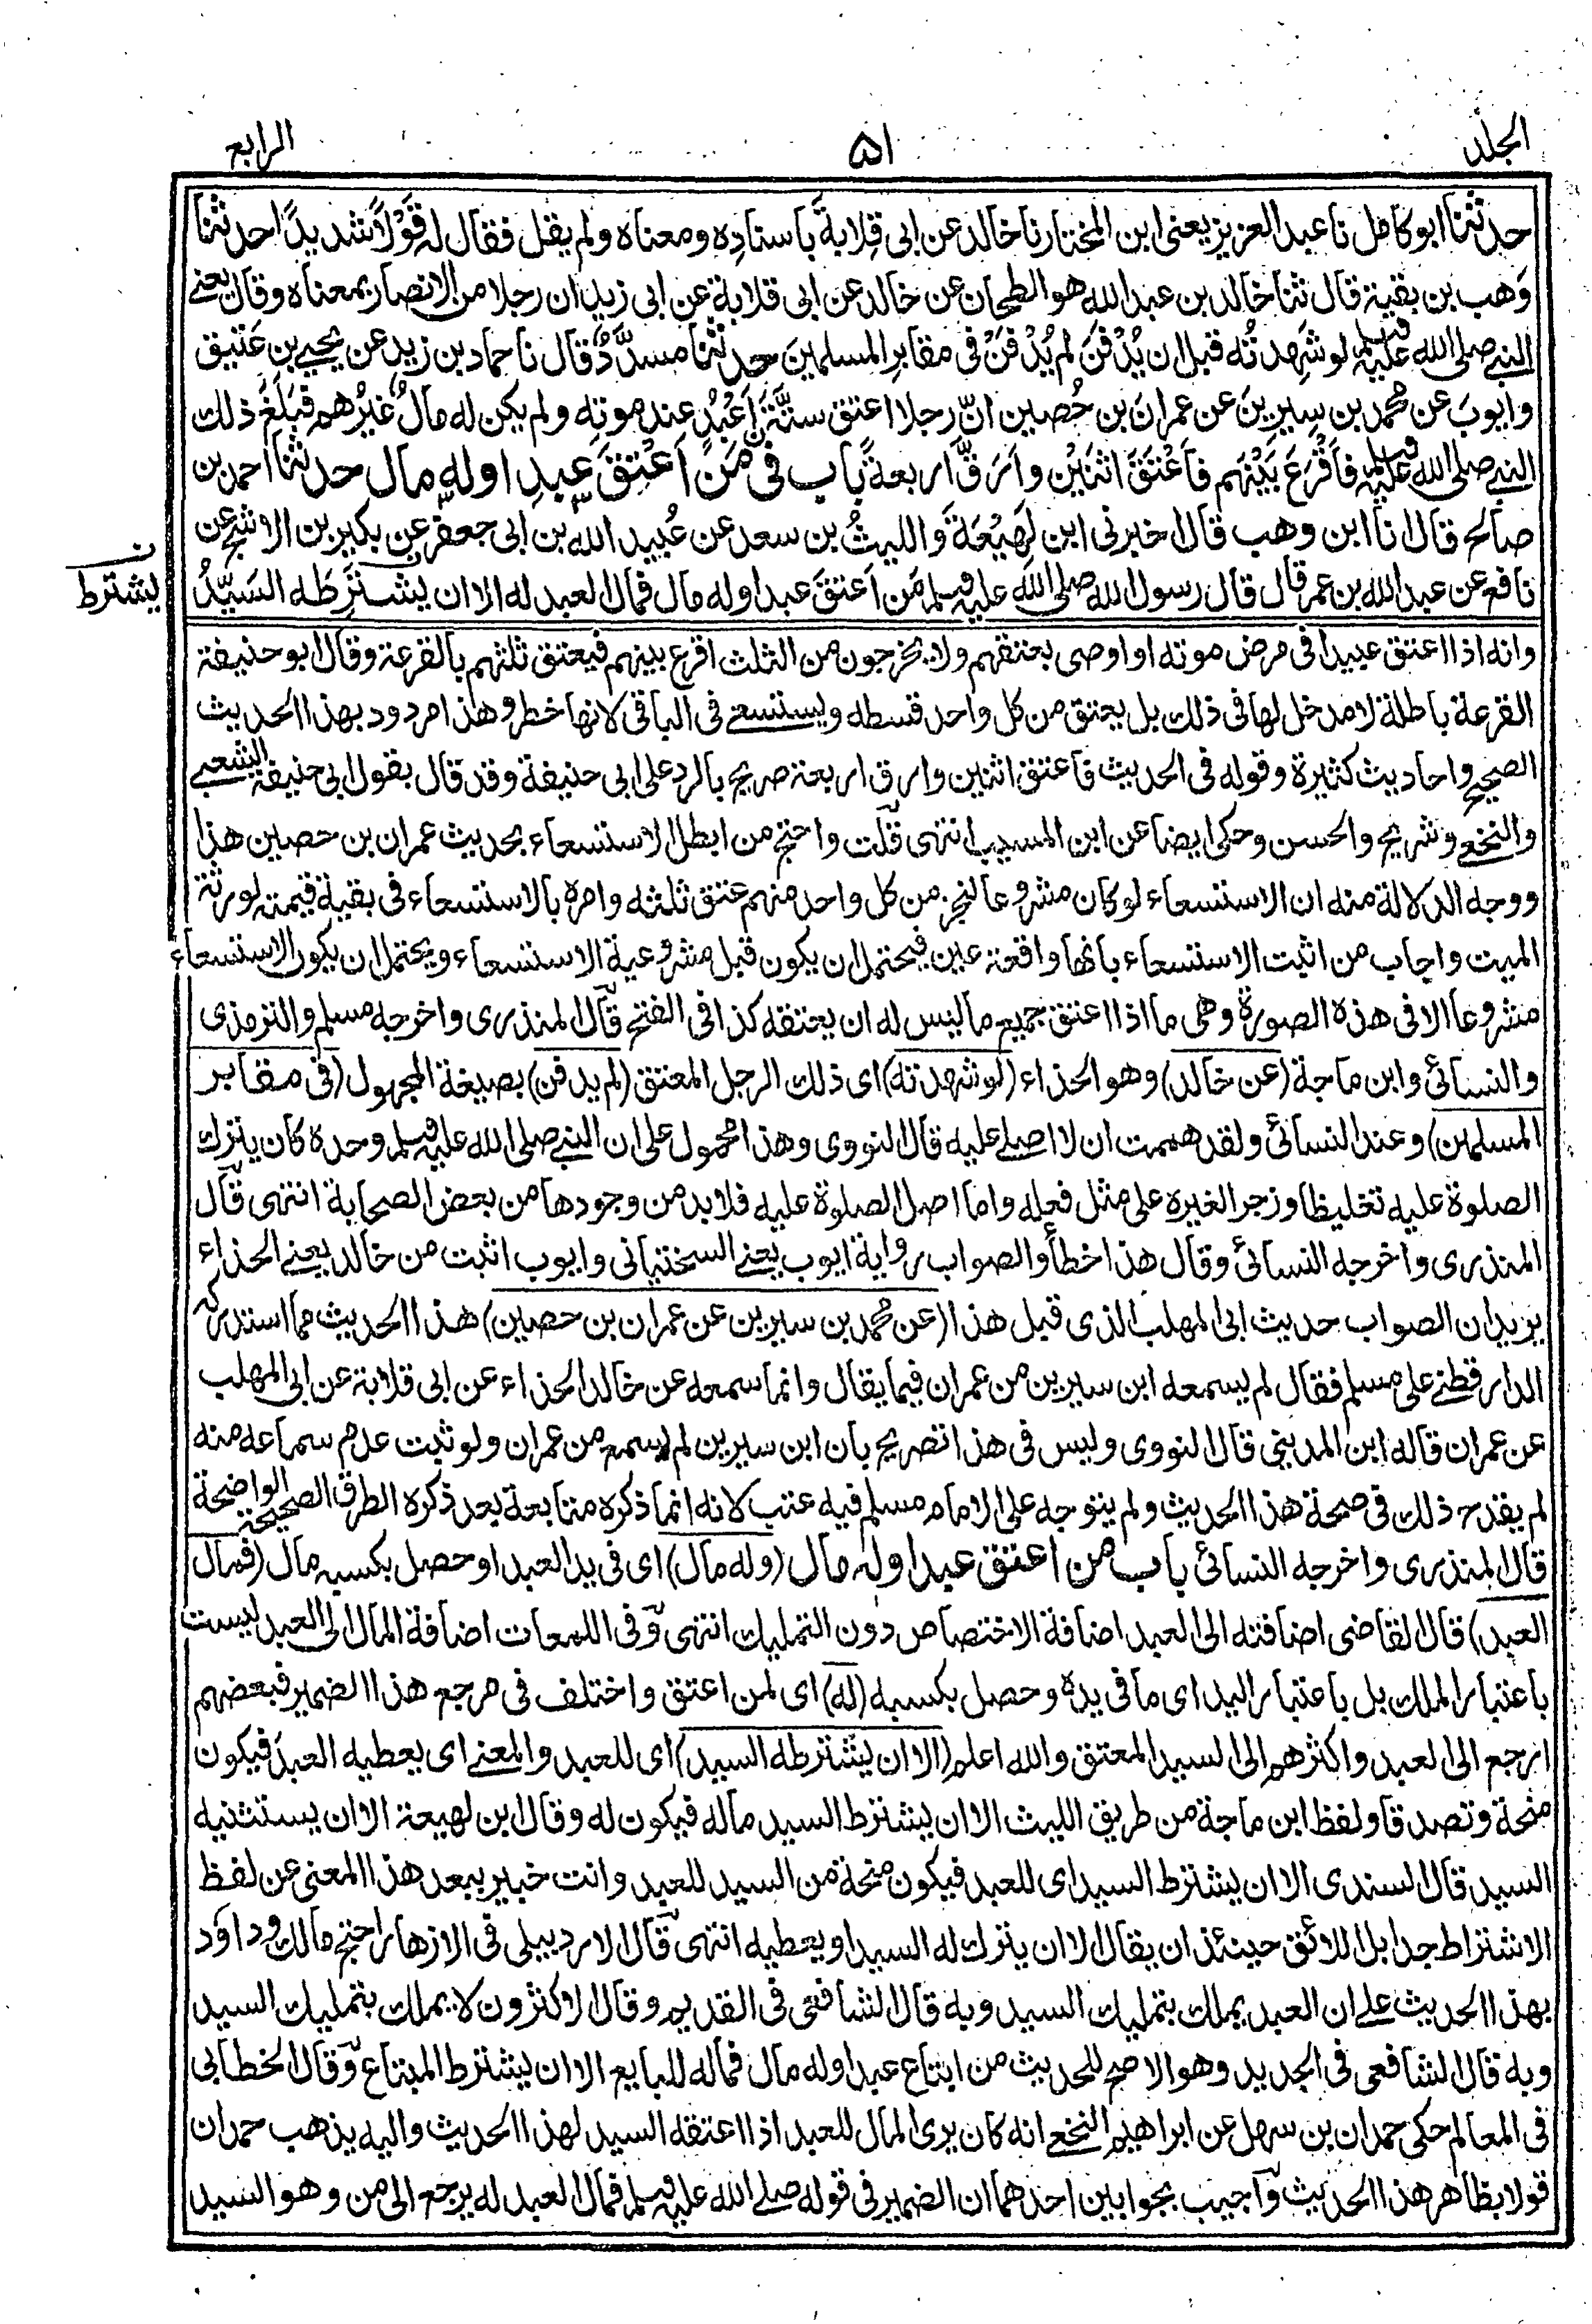 الجلد ۵۱ الرابع
حدثنا ابو كامل نا عبد العزيز يعنى ابن المختار نا خالد عن ابى قِلابةَ باسنادِه ومعناه ولم يقل فقال له قَوْلًا شديدًا حدثنا
وَهب بن بقية قال ثنا خالد بن عبد الله هو الطحان عن خالد عن ابى قلابة عن ابى زيد ان رجلا من الانصار بمعناه وقال يعنے
النبے صلى الله عليه وسلم لو شَهِدتُه قبل ان يُدْفَنَ لم يُدْفَنْ فى مقابرِ المسلمين حدثنا مسدَّدٌ قال نا حماد بن زيد عن يحيے بن عَتيق
وايوبَ عن محمد بن سِيرينَ عن عمرانَ بن حُصين انّ رجلا اعتق ستَّةَ اَعْبُدٍ عند موتِه ولم يكن له مالٌ غيرُهم فبَلَغَ ذلك
النبے صلى الله عليه وسلم فاَقْرَعَ بَيْنَهم فاَعْتَقَ اثنَيْن واَرَقَّ اربعةً باب فى مَنْ اَعْتَقَ عبدا وله مال حدثنا احمد بن
صالح قال انا ابن وهب قال اخبرنى ابن لَهِيْعَةَ والليثُ بن سعد عن عُبيد الله بن ابى جعفر عن بكير بن الاشج عن
نافع عن عبد الله بن عمر قال قال رسول الله صلى الله عليه وسلم مَن اَعتَقَ عبدا وله مال فمال العبد له الا ان يشترِطَه السَيِّدُ
ن
يشترط
وانه اذا اعتق عبيدا فى مرض موته او اوصى بعتقهم ولا يخرجون من الثلث اقرع بينهم فيعتق ثلثهم بالقرعة وقال ابو حنيفة
القرعة باطلة لا مدخل لها فى ذلك بل يعتق من كل واحد قسطه ويستسعے فى الباقى لانها خطر وهذا مردود بهذا الحديث
الصحيح واحاديث كثيرة وقوله فى الحديث فاعتق اثنين وارق اربعة صريح بالرد على ابى حنيفة وقد قال بقول ابى حنيفة الشعبے
والنخعے وشريح والحسن وحكى ايضا عن ابن المسيب انتهى قلت واحتج من ابطل الاستسعاء بحديث عمران بن حصين هذا
ووجه الدلالة منه ان الاستسعاء لو كان مشروعا لنجز من كل واحد منهم عتق ثلثه وامره بالاستسعاء فى بقية قيمته لورثة
الميت واجاب من اثبت الاستسعاء بانها واقعة عين فيحتمل ان يكون قبل مشروعية الاستسعاء ويحتمل ان يكون الاستسعاء
مشروعا الا فى هذه الصورة وهى ما اذا اعتق جميع ما ليس له ان يعتقه كذا فى الفتح قال المنذرى واخرجه مسلم والترمذى
والنسائى وابن ماجة (عن خالد) وهو الحذاء (لو شهدته) اى ذلك الرجل المعتق (لم يدفن) بصيغة المجهول (فى مقابر
المسلمين) وعند النسائى ولقد هممت ان لا اصلے عليه قال النووى وهذا محمول على ان النبے صلى الله عليه وسلم وحده كان يترك
الصلوة عليه تغليظا وزجر الغيره على مثل فعله واما اصل الصلوة عليه فلا بد من وجودها من بعض الصحابة انتهى قال
المنذرى واخرجه النسائى وقال هذا خطأ والصواب رواية ايوب يعنے السختيانى وايوب اثبت من خالد يعنے الحذاء
يريد ان الصواب حديث ابى المهلب الذى قبل هذا (عن محمد بن سيرين عن عمران بن حصين) هذا الحديث مما استدركه
الدارقطنے على مسلم فقال لم يسمعه ابن سيرين من عمران فيما يقال وانما سمعه عن خالد الحذاء عن ابى قلابة عن ابى المهلب
عن عمران قاله ابن المدينى قال النووى وليس فى هذا تصريح بان ابن سيرين لم يسمع من عمران ولو ثبت عدم سماعه منه
لم يقدح ذلك فى صحة هذا الحديث ولم يتوجه على الامام مسلم فيه عتب لانه انما ذكره متابعة بعد ذكره الطرق الصحيحة الواضحة
قال المنذرى واخرجه النسائى باب من اعتق عبدا وله مال (وله مال) اى فى يد العبد او حصل بكسبه مال (فمال
العبد) قال القاضى اضافته الى العبد اضافة الاختصاص دون التمليك انتهى وفى اللمعات اضافة المال الى العبد ليست
باعتبار الملك بل باعتبار اليد اى ما فى يده وحصل بكسبه (له) اى لمن اعتق واختلف فى مرجع هذا الضمير فبعضهم
ارجع الى العبد واكثرهم الى السيد المعتق والله اعلم (الا ان يشترطه السيد) اى للعبد والمعنے اى يعطيه العبد فيكون
منحة وتصدقا ولفظ ابن ماجة من طريق الليث الا ان يشترط السيد ماله فيكون له وقال ابن لهيعة الا ان يستثنيه
السيد قال السندى الا ان يشترط السيد اى للعبد فيكون منحة من السيد للعبد وانت خبير ببعد هذا المعنى عن لفظ
الاشتراط جدا بل اللائق حينئذ ان يقال الا ان يترك له السيد او يعطيه انتهى قال الاردبيلى فى الازهار احتج مالك وداؤد
بهذا الحديث علے ان العبد يملك بتمليك السيد وبه قال الشافعى فى القديم وقال الاكثرون لا يملك بتمليك السيد
وبه قال الشافعى فى الجديد وهو الاصح للحديث من ابتاع عبدا وله مال فماله للبايع الا ان يشترط المبتاع وقال الخطابى
فى المعالم حكى حمدان بن سهل عن ابراهيم النخعے انه كان يرى المال للعبد اذا اعتقه السيد لهذا الحديث واليه يذهب حمدان
قولا بظاهر هذا الحديث وآجيب بجوابين احدهما ان الضمير فى قوله صلے الله عليه وسلم فمال العبد له يرجع الى من وهو السيد